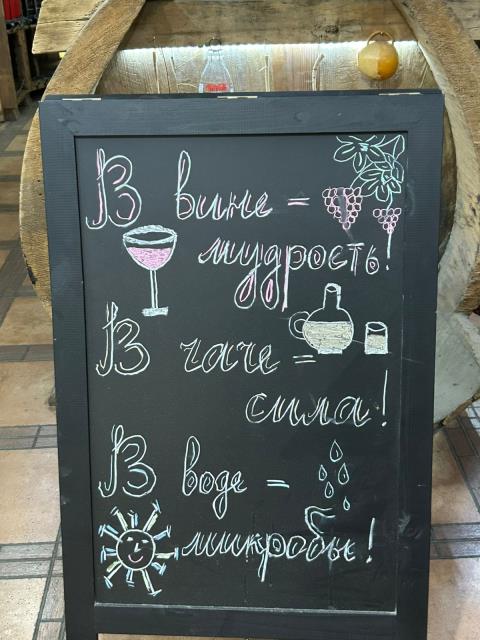 В вине =
мудрость!
В чаче =
сила!
В воде =
микробы!